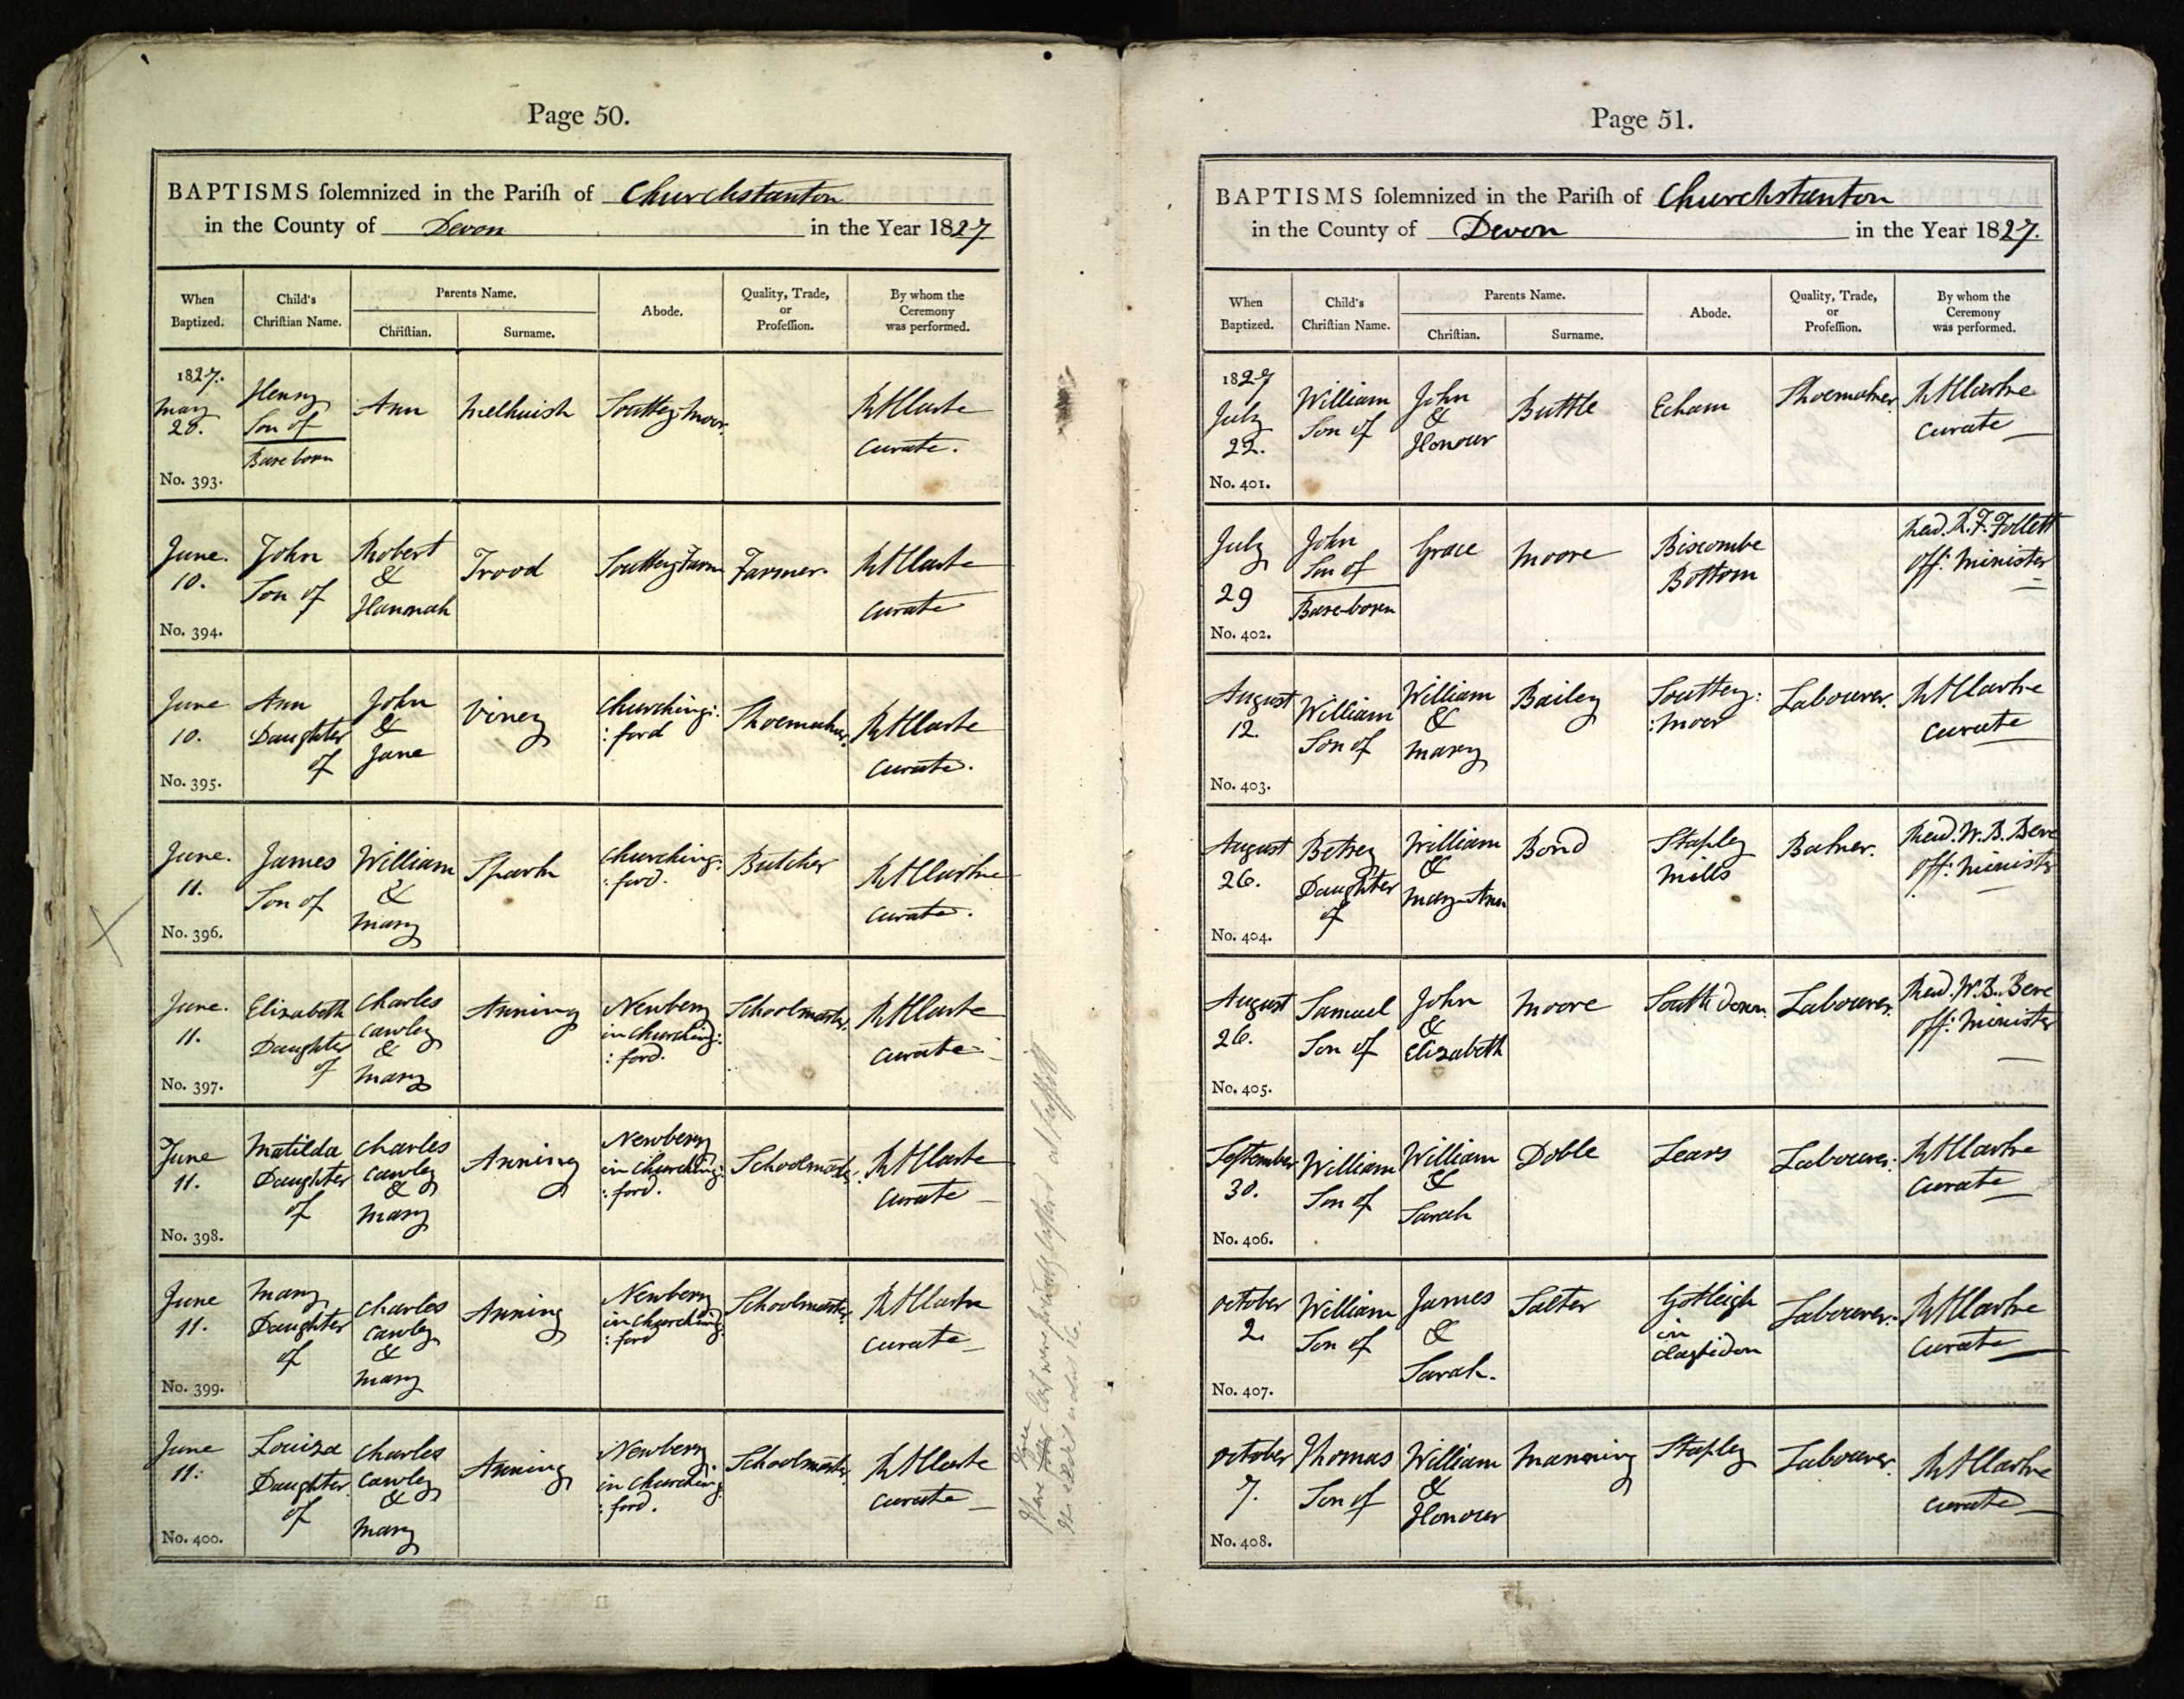 Page 50.
BAPTISMS ſolemnized in the Pariſh of Churchstanton
in the County of Devon in the Year 1827
When Baptized.
Child's Chriſtian Name.
Parents Name.
Chriſtian.
Surname.
Abode.
Quality, Trade, or Profeſſion.
By whom the Ceremony was performed.
1827.
May
28.
No. 393.
Henry
Son of
Base born
Ann
Melhuish
Southey Moor
Curate.
June.
10.
No. 394.
John
Son of
Robert
&
Hannah
Trood
Southey Farm
Farmer.
Curate
June
10.
No. 395.
Ann
Daughter
of
John
&
Jane
Viney
Churching:
:ford
Shoemaker.
Curate.
June.
11.
No. 396.
James
Son of
William
&
Mary
Spark
Churching:
:ford.
Butcher
Curate.
June.
11.
No. 397.
Elizabeth
Daughter
of
Charles
Cawley
&
Mary
Anning
Newberry
in Churching:
:ford.
Schoolmaster.
Curate
June
11.
No. 398.
Matilda
Daughter
of
Charles
Cawley
&
Mary
Anning
Newberry
in Churching:
:ford.
Schoolmaster.
Curate
June
11.
No. 399.
Mary
Daughter
of
Charles
Cawley
&
Mary
Anning
Newberry
in Churching:
:ford
Schoolmaster.
Curate
June
11.
No. 400.
Louiza
Daughter
of
Charles
Cawley
&
Mary
Anning
Newberry
in Churching:
:ford.
Schoolmaster.
Curate
Page 51.
BAPTISMS ſolemnized in the Pariſh of Churchstanton
in the County of Devon in the Year 1827.
When Baptized.
Child's Chriſtian Name.
Parents Name.
Chriſtian.
Surname.
Abode.
Quality, Trade, or Profeſſion.
By whom the Ceremony was performed.
1827
July
22.
No. 401.
William
Son of
John
&
Honour
Buttle
Echam
Shoemaker.
Curate
July
29
No. 402.
John
Son of
Base-born
Grace
Moore
Biscombe
Bottom
Revd. R. F. Follett
Off: Minister
August
12.
No. 403.
William
Son of
William
&
Mary
Bailey
Southey:
:Moor
Labourer.
Curate
August
26.
No. 404.
Betsey
Daughter
of
William
&
Mary-Ann
Bond
Stapley
Mills
Baker.
Revd. W. B. Bere
Off: Minister
August
26.
No. 405.
Samuel
Son of
John
&
Elizabeth
Moore
South down
Labourer.
Revd. W. B. Bere
Off: Minister
September
30.
No. 406.
William
Son of
William
&
Sarah
Doble
Lears
Labourer.
Curate
October
2.
No. 407.
William
Son of
James
&
Sarah.
Salter
Gotleigh
in
Clayhidon
Labourer.
Curate
October
7.
No. 408.
Thomas
Son of
William
&
Honour
Manning
Stapley
Labourer.
Curate